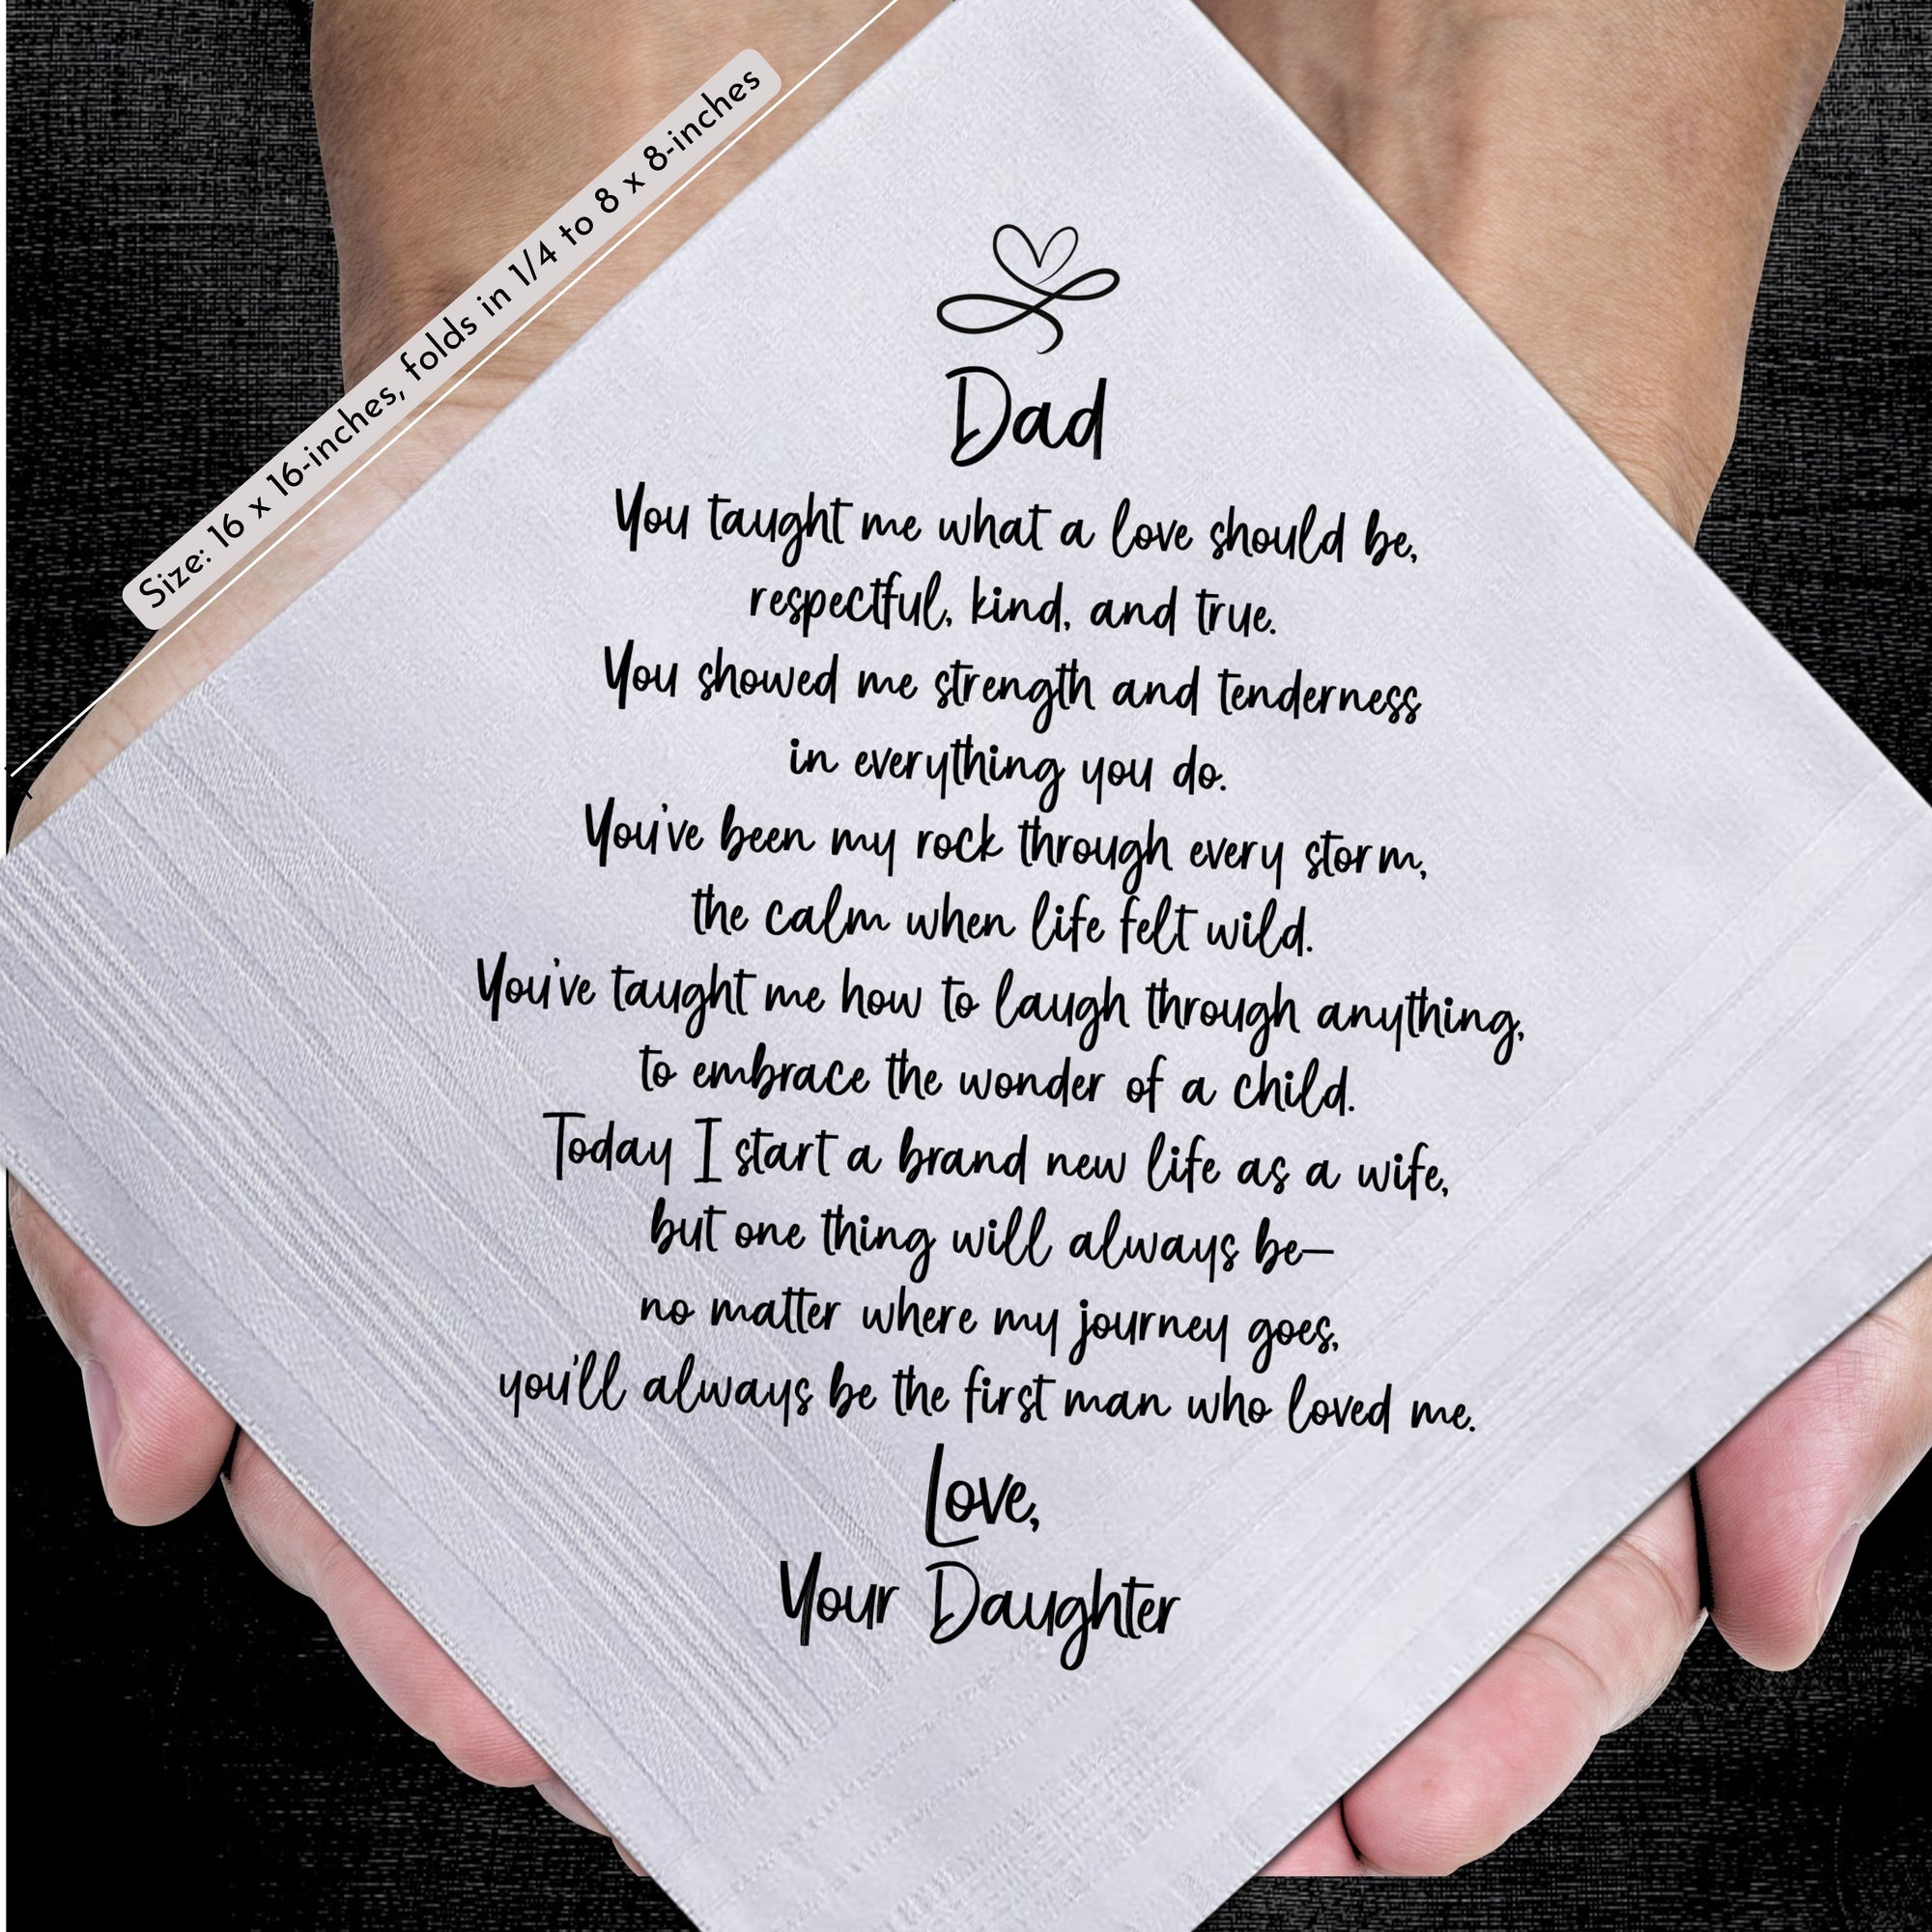 Size: 16 x 16-inches, folds in 1/4 to 8 x 8-inches
Dad
You taught me what a love should be,
respectful, kind, and true.
You showed me strength and tenderness
in everything you do.
You've been my rock through every storm,
the calm when life felt wild.
You've taught me how to laugh through anything,
to embrace the wonder of a child.
Today I start a brand new life as a wife,
but one thing will always be—
no matter where my journey goes,
you'll always be the first man who loved me.
Love,
Your Daughter